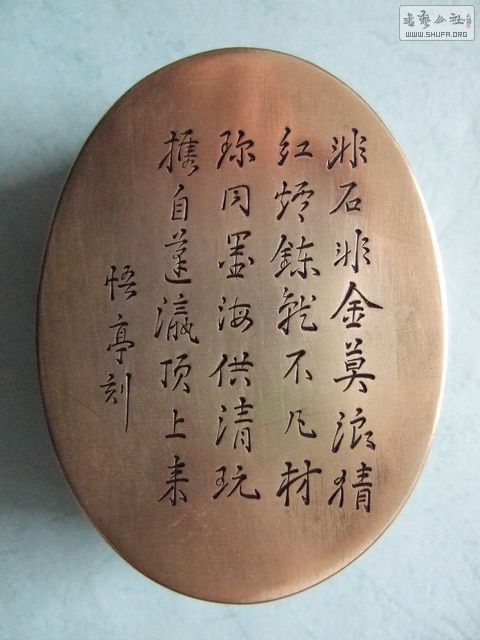 非石非金莫浪猜
红炉鍊就不凡材
珎同墨海供清玩
携自蓬瀛顶上来
悟亭刻
书艺公社
WWW.SHUFA.ORG